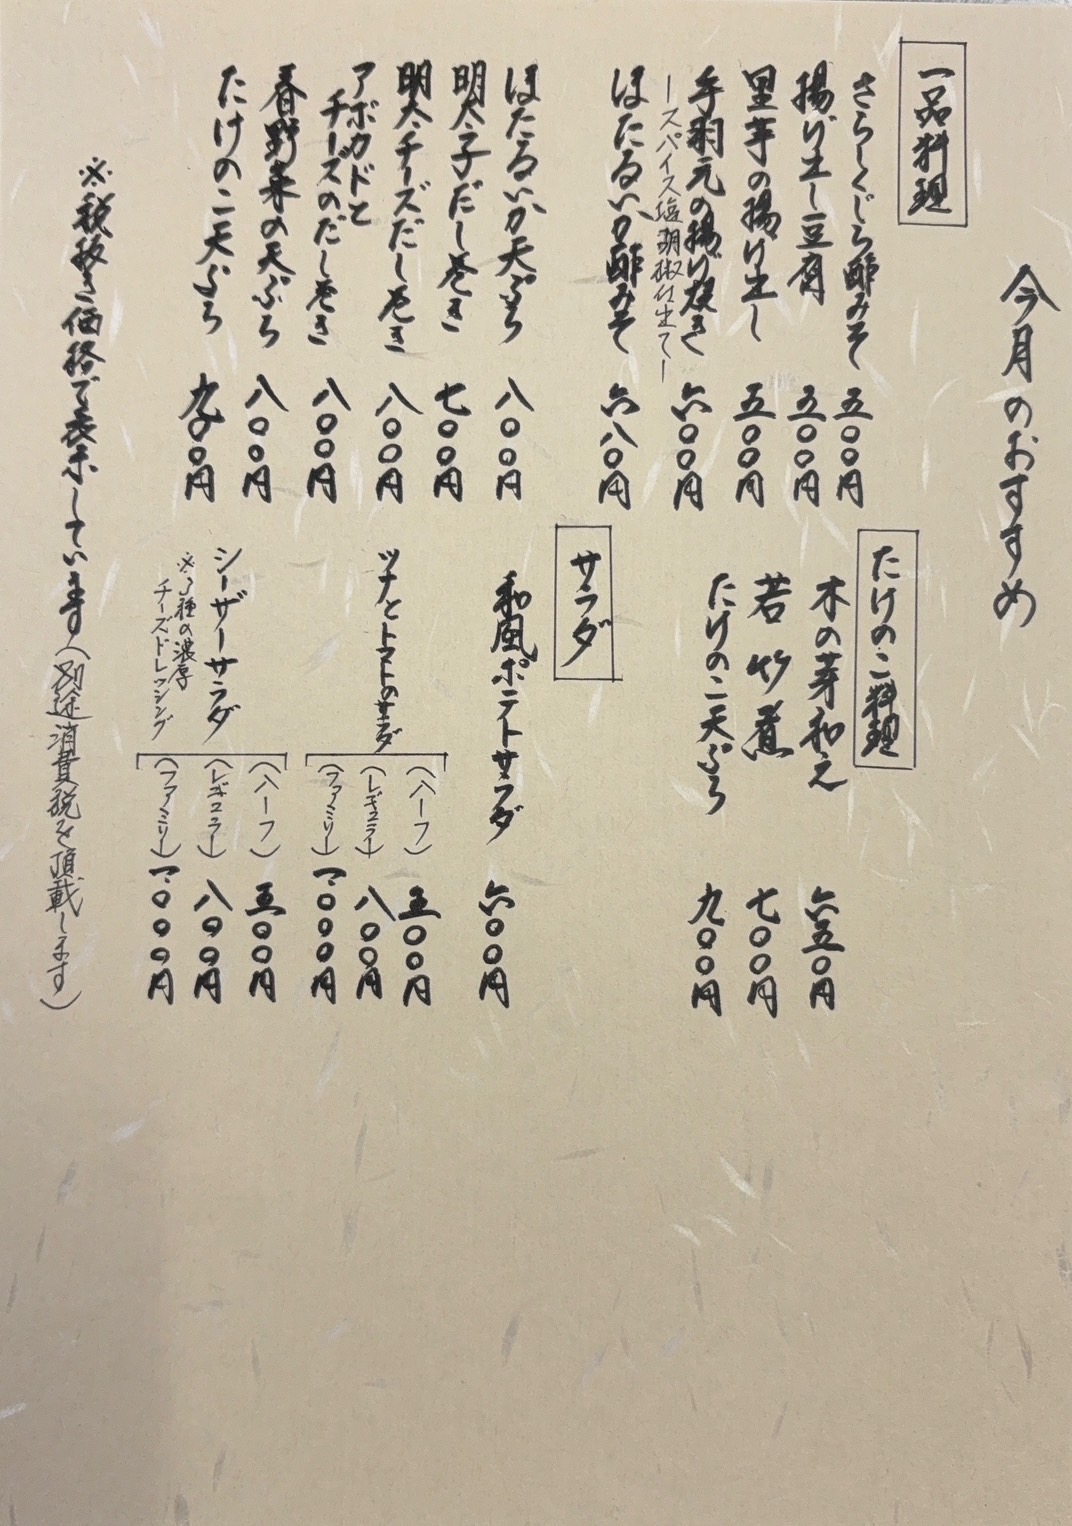 今月のおすすめ
一品料理
さらしくじら酢みそ 五〇〇円
揚げ出し豆腐 五〇〇円
里芋の揚げ出し 五〇〇円
手羽元の揚げ焼き 六〇〇円
ースパイス塩胡椒仕立てー
ほたるいか酢みそ 六八〇円
ほたるいか天ぷら 八〇〇円
明太子だし巻き 七〇〇円
明太チーズだし巻き 八〇〇円
アボカドと
チーズのだし巻き 八〇〇円
春野菜の天ぷら 八〇〇円
たけのこ天ぷら 九〇〇円
たけのこ料理
木の芽和え 六五〇円
若竹煮 七〇〇円
たけのこ天ぷら 九〇〇円
サラダ
和風ポテトサラダ 六〇〇円
ツナとトマトのサラダ
(ハーフ) 五〇〇円
(レギュラー) 八〇〇円
(ファミリー) 一、〇〇〇円
シーザーサラダ
※3種の濃厚
チーズドレッシング
(ハーフ) 五〇〇円
(レギュラー) 八〇〇円
(ファミリー) 一、〇〇〇円
※税抜き価格で表示しています(別途消費税を頂載します)